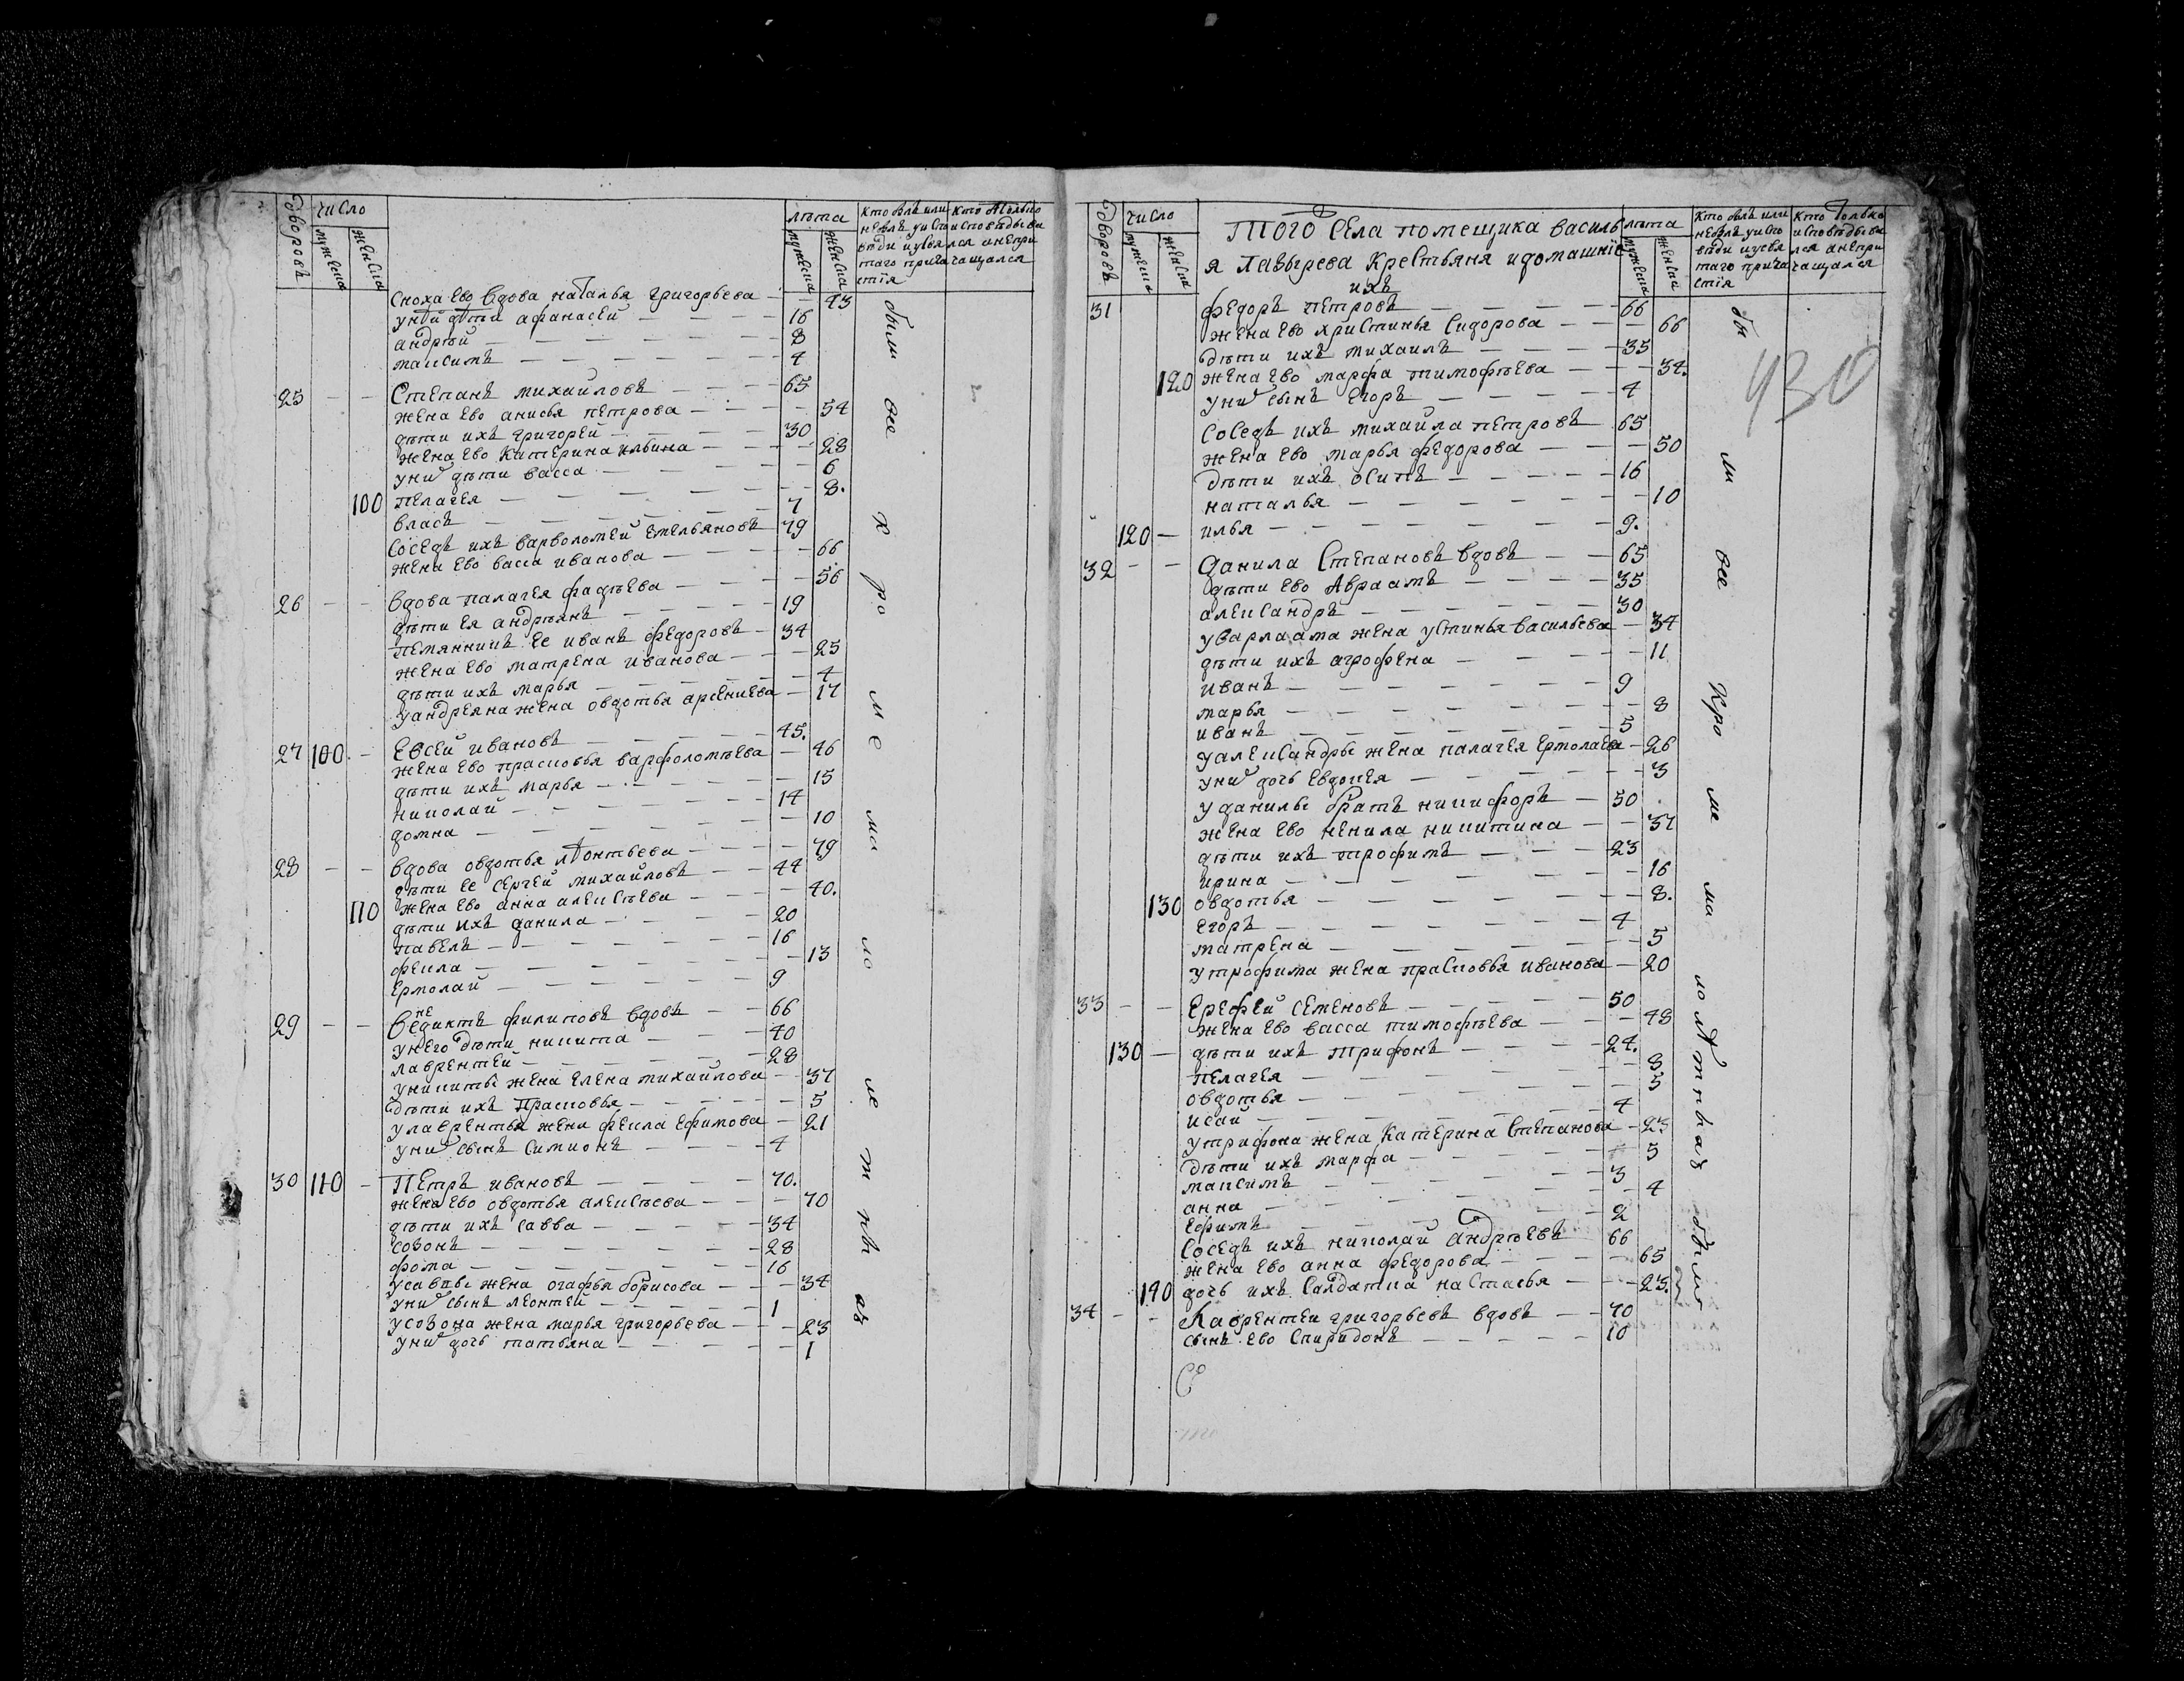 дворовъ
число
мужеска
женска
лѣта
мужеска
женска
Кто былъ или
Кто только
Сноха ево вдова наталья григорьева — — 43
у ней дѣти афанасей — — — — 16
андрѣй — — — — — — 8
максимъ — — — — — 4
25 — — Степанъ михайловъ — — — 65
жена ево анисья петрова — — — — 54
дѣти ихъ григорей — — — — 30
жена ево катерина ильина — — — — 28
у них дѣти васса — — — — — 6
100 пелагея — — — — — — — 8.
власъ — — — — — — 7
соседъ ихъ варволомей емельяновъ 79
жена ево васса иванова — — — — 66
26 — — вдова палагея фадѣева — — — — 56
дѣти ея андрѣянъ — — — — 19
племянникъ ее иванъ федоровъ — 34
жена ево матрена иванова — — — 25
дѣти ихъ марья — — — — — 4
у андреяна жена овдотья арсениева — 17
27 100 — Евсей ивановъ — — — — — 45.
жена ево прасковья варфоломѣева — 46
дѣти ихъ марья — — — — — 15
николай — — — — — — 14
домна — — — — — — — 10
28 — — вдова овдотья леонтьева — — — — 79
дѣти ее сергей михайловъ — — 44
110 жена ево анна алексѣева — — — — 40.
дѣти ихъ данила — — — — 20
павелъ — — — — — — 16
фекла — — — — — — — 13
ермолай — — — — — — 9
29 — — Венедиктъ филиповъ вдовъ — — 66
у него дѣти никита — — — 40
лаврентей — — — — — 28
у никиты жена елена михайлова — 37
дѣти ихъ прасковья — — — — — 5
у лаврентья жена фекла ефимова — 21
у них сынъ симионъ — — — — 4
30 110 — Петръ ивановъ — — — — — 70.
жена ево овдотья алексѣева — — — 70
дѣти ихъ савва — — — — — 34
созонъ — — — — — — 28
фома — — — — — — — 16
у саввы жена огафья борисова — — — 34
у них сынъ леонтей — — — — — 1
у созона жена марья григорьева — — — 23
у них дочь татьяна — — — — — — 1
были все кро ме ма ло ле т ны хъ
дворовъ
число
мужеска
женска
Того села помещика василь
я Лавырева крестьяня и домашние
ихъ
лѣта
мужеска
женска
Кто былъ или
Кто только
430
31 федоръ петровъ — — — — 66
жена ево христинья сидорова — — — 66
дѣти ихъ михаилъ — — — — 35
120 жена ево марфа тимофѣева — — — 34.
у них сынъ егоръ — — — — 4
соседъ ихъ михайла петровъ 65
жена ево марья федорова — — — 50
дѣти ихъ осипъ — — — — 16
наталья — — — — — — 10
120 — илья — — — — — — — 9.
32 — — Данила Степановъ вдовъ — — 65
дѣти ево Авраамъ — — — — 35
александръ — — — — — — 30
у варлаама жена устинья васильева — 34
дѣти ихъ агрофена — — — — — 11
иванъ — — — — — — — 9
марья — — — — — — — — 8
иванъ — — — — — — — 5
у александры жена палагея ермолаева — 26
у них дочь евдокея — — — — — — 3
у данилы братъ никифоръ — 50
жена ево ненила никитина — — — 37
дѣти ихъ трофимъ — — — 23
ирина — — — — — — — — 16
130 овдотья — — — — — — — 8.
егоръ — — — — — — — 4
матрена — — — — — — — 5
у трофима жена прасковья иванова — 20
33 — — Ерефей семеновъ — — — — 50
жена ево васса тимофѣева — — — 48
130 — дѣти ихъ трифонъ — — — — 24.
пелагея — — — — — — — 8
овдотья — — — — — — — 5
исай — — — — — — — 4
у трифона жена катерина степанова — 23
дѣти ихъ марфа — — — — — 5
максимъ — — — — — — 3
анна — — — — — — — — 4
ефимъ — — — — — — 2
соседъ ихъ николай андрѣевъ 66
жена ево анна федорова — — — 65
140 дочь ихъ салдатка настасья — — — 23.
34 — — Лаврентеи григорьевъ вдовъ — — 70
сынъ ево спиридонъ — — — — — 10
бы ли все кро ме ма ло лѣтныхъ были